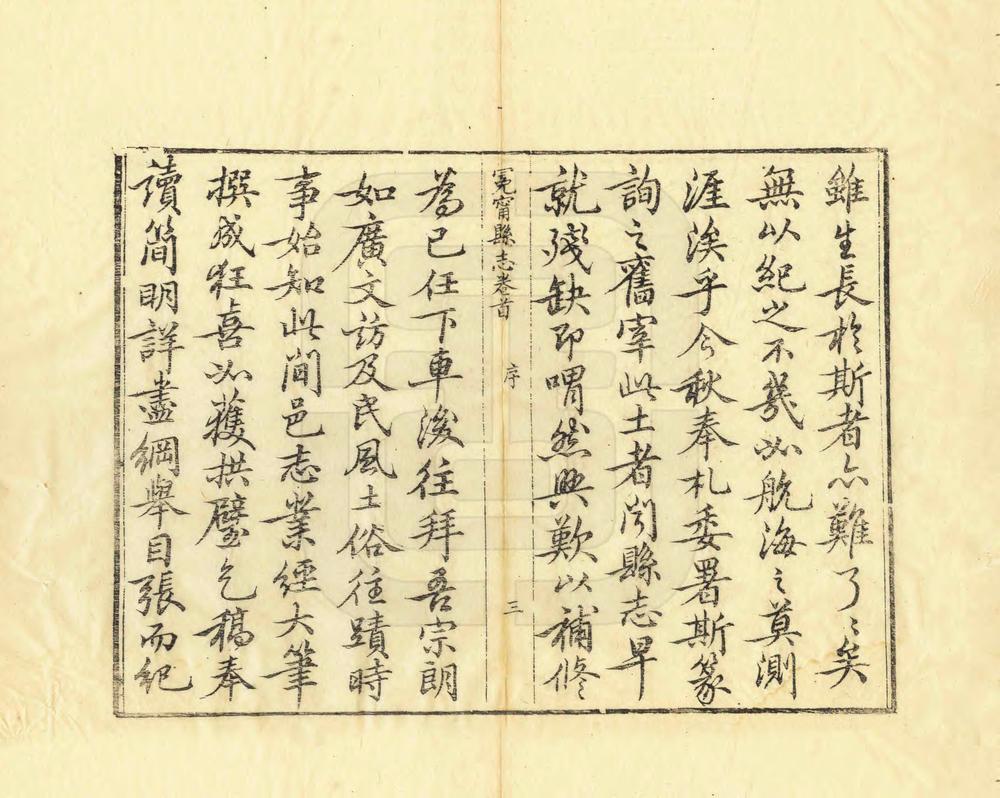 雖生長於斯者亦難了〻矣
無以紀之不幾如航海之莫測
涯涘乎今秋奉札委署斯篆
詢之舊宰此土者聞縣志早
就殘缺即喟然興歎以補修
冕甯縣志卷首 序 三
為已任下車後往拜吾宗朗
如廣文訪及民風土俗往蹟時
事始知此間邑志業經大筆
撰成狂喜如獲拱璧乞稿奉
讀簡明詳盡綱舉目張而紀